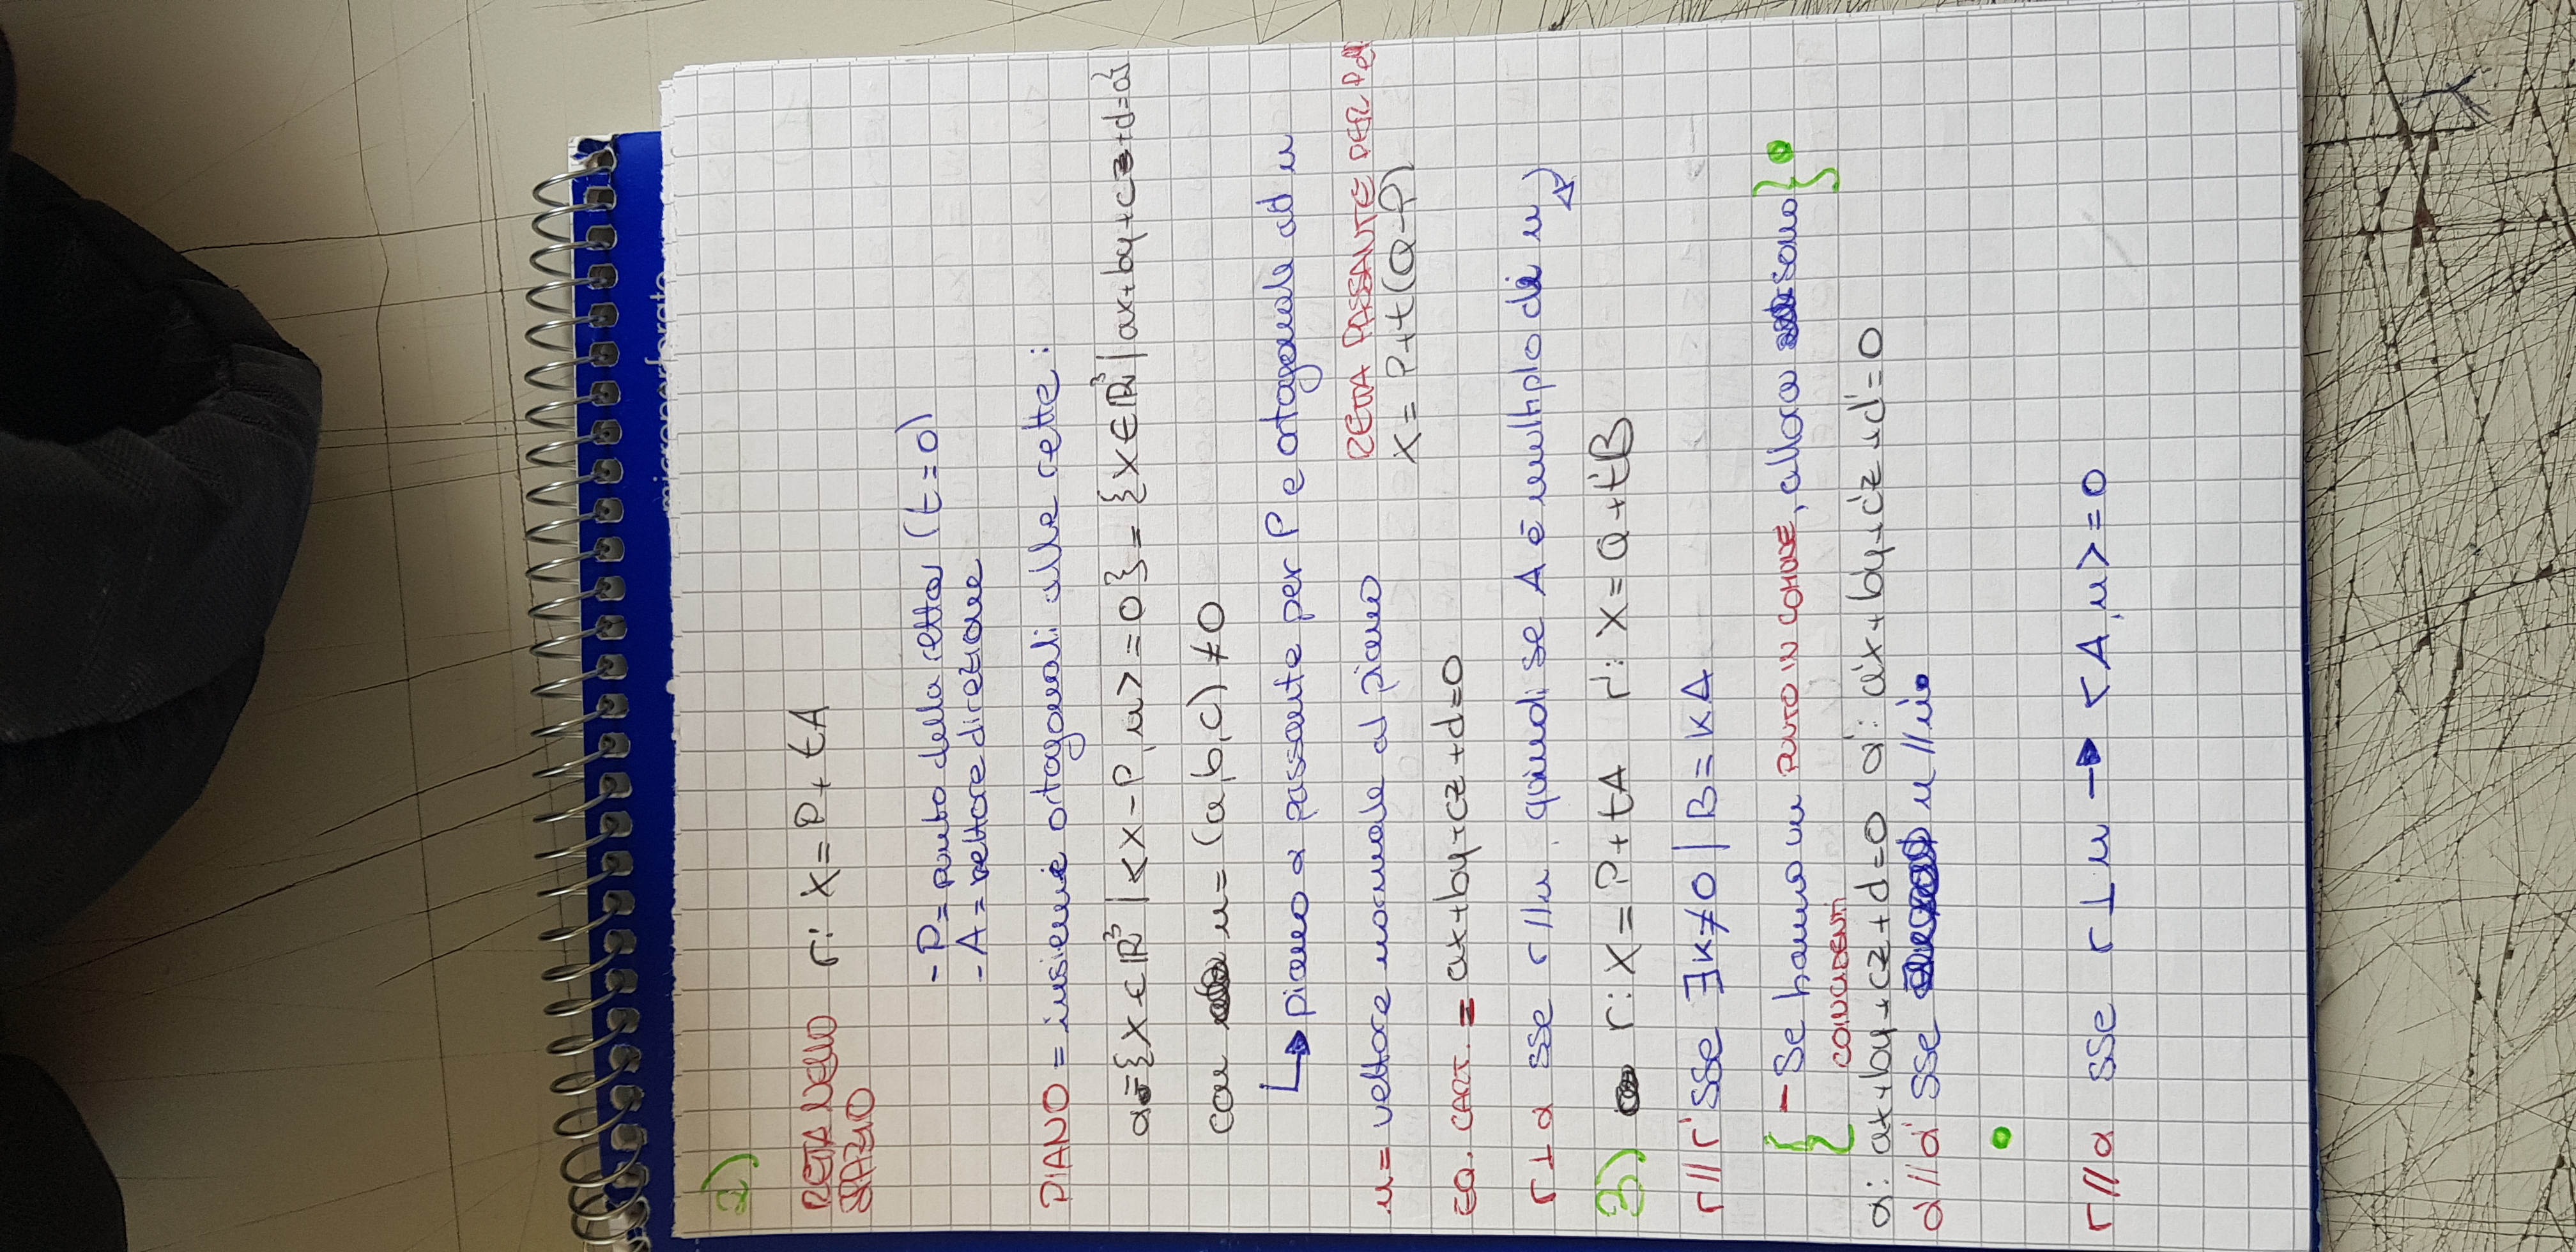 microperforato
2)
RETTA NELLO r: X = P + tA
SPAZIO
- P = punto della retta (t=0)
- A = vettore direzione
PIANO = insieme ortogonali alle rette:
α={X ∈ ℝ³ | <X-P, u> = 0} = {X ∈ ℝ³ | ax+by+cz+d=0}
con u = (a,b,c) ≠ 0
↳ piano α passante per P e ortogonale ad u
u = vettore normale al piano
RETTA PASSANTE PER P e Q
X = P+t(Q-P)
EQ. CART. = ax+by+cz+d=0
r ⊥ α sse r//u, quindi se A è multiplo di u
3) r: X = P + tA r': X = Q + t'B
r // r' sse ∃k≠0 | B = kA
{ - Se hanno un PUNTO IN COMUNE, allora sono }
COINCIDENTI
α: ax+by+cz+d=0 α': a'x+b'y+c'z+d'=0
α//α' sse u//u'
r//α sse r⊥u → <A,u> = 0